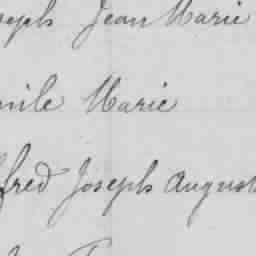 oseph Jean Marie
mile Marie
lfred Joseph August